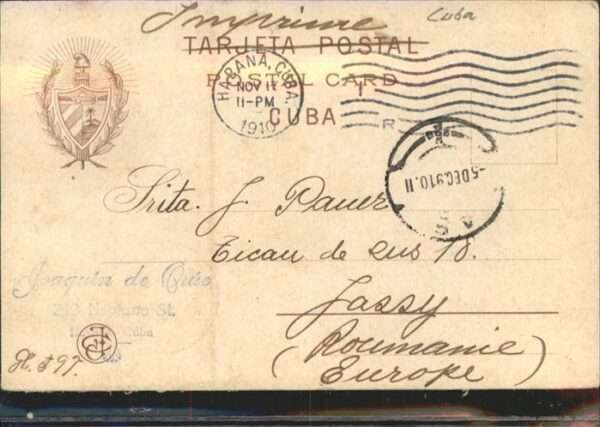 Imprimé
Cuba
TARJETA POSTAL
POSTAL CARD
CUBA
HABANA, CUBA.
NOV 17
11-PM
1910
R
5 DEC. 910. 11
Srita. J. Pauer
Ticau de sus 18.
Jassy
(Roumanie
Europe)
Joaquin de
St.
Cuba